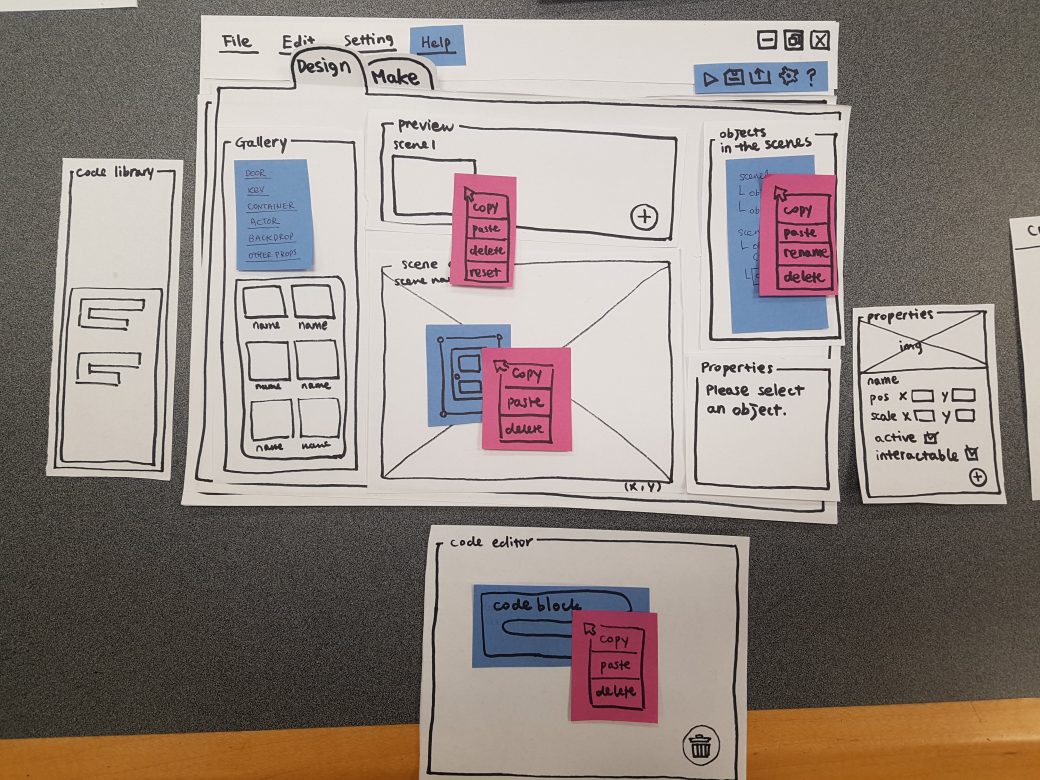 File Edit Setting Help
?
Design Make
code library
Gallery
DOOR
KEY
CONTAINER
ACTOR
BACKDROP
OTHER PROPS
name name
name name
name name
preview
scene1
copy
paste
delete
reset
scene
copy
paste
delete
(x, y)
objects
in the scenes
copy
paste
rename
delete
Properties
Please select
an object.
properties
img
name
pos X y
scale X y
active
interactable
code editor
code block
copy
paste
delete